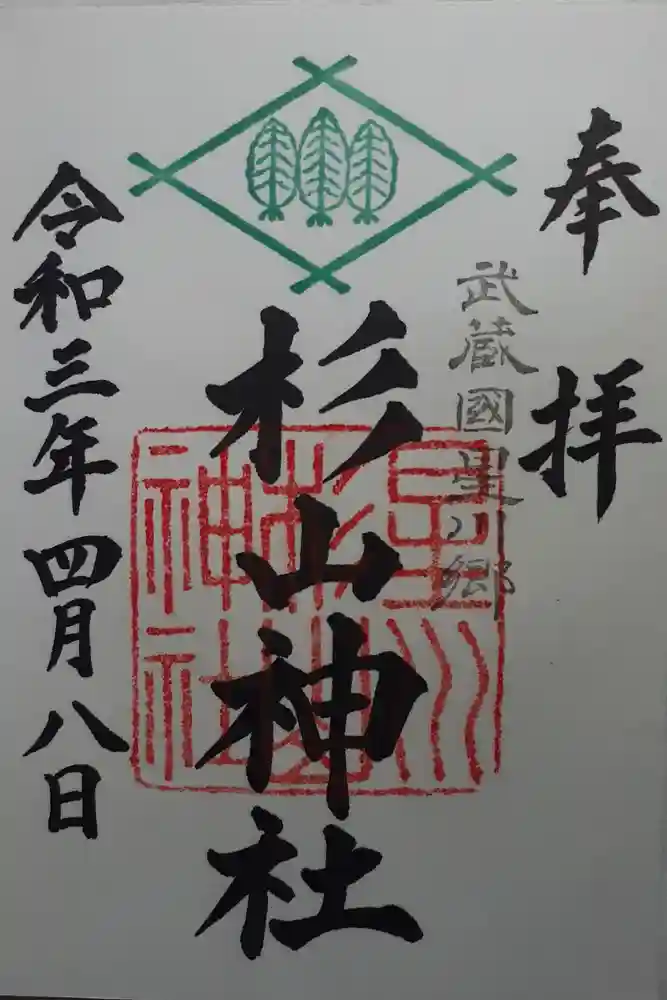 奉拝
武蔵國星川郷
杉山神社
星川
杉山
神社
令和三年四月八日